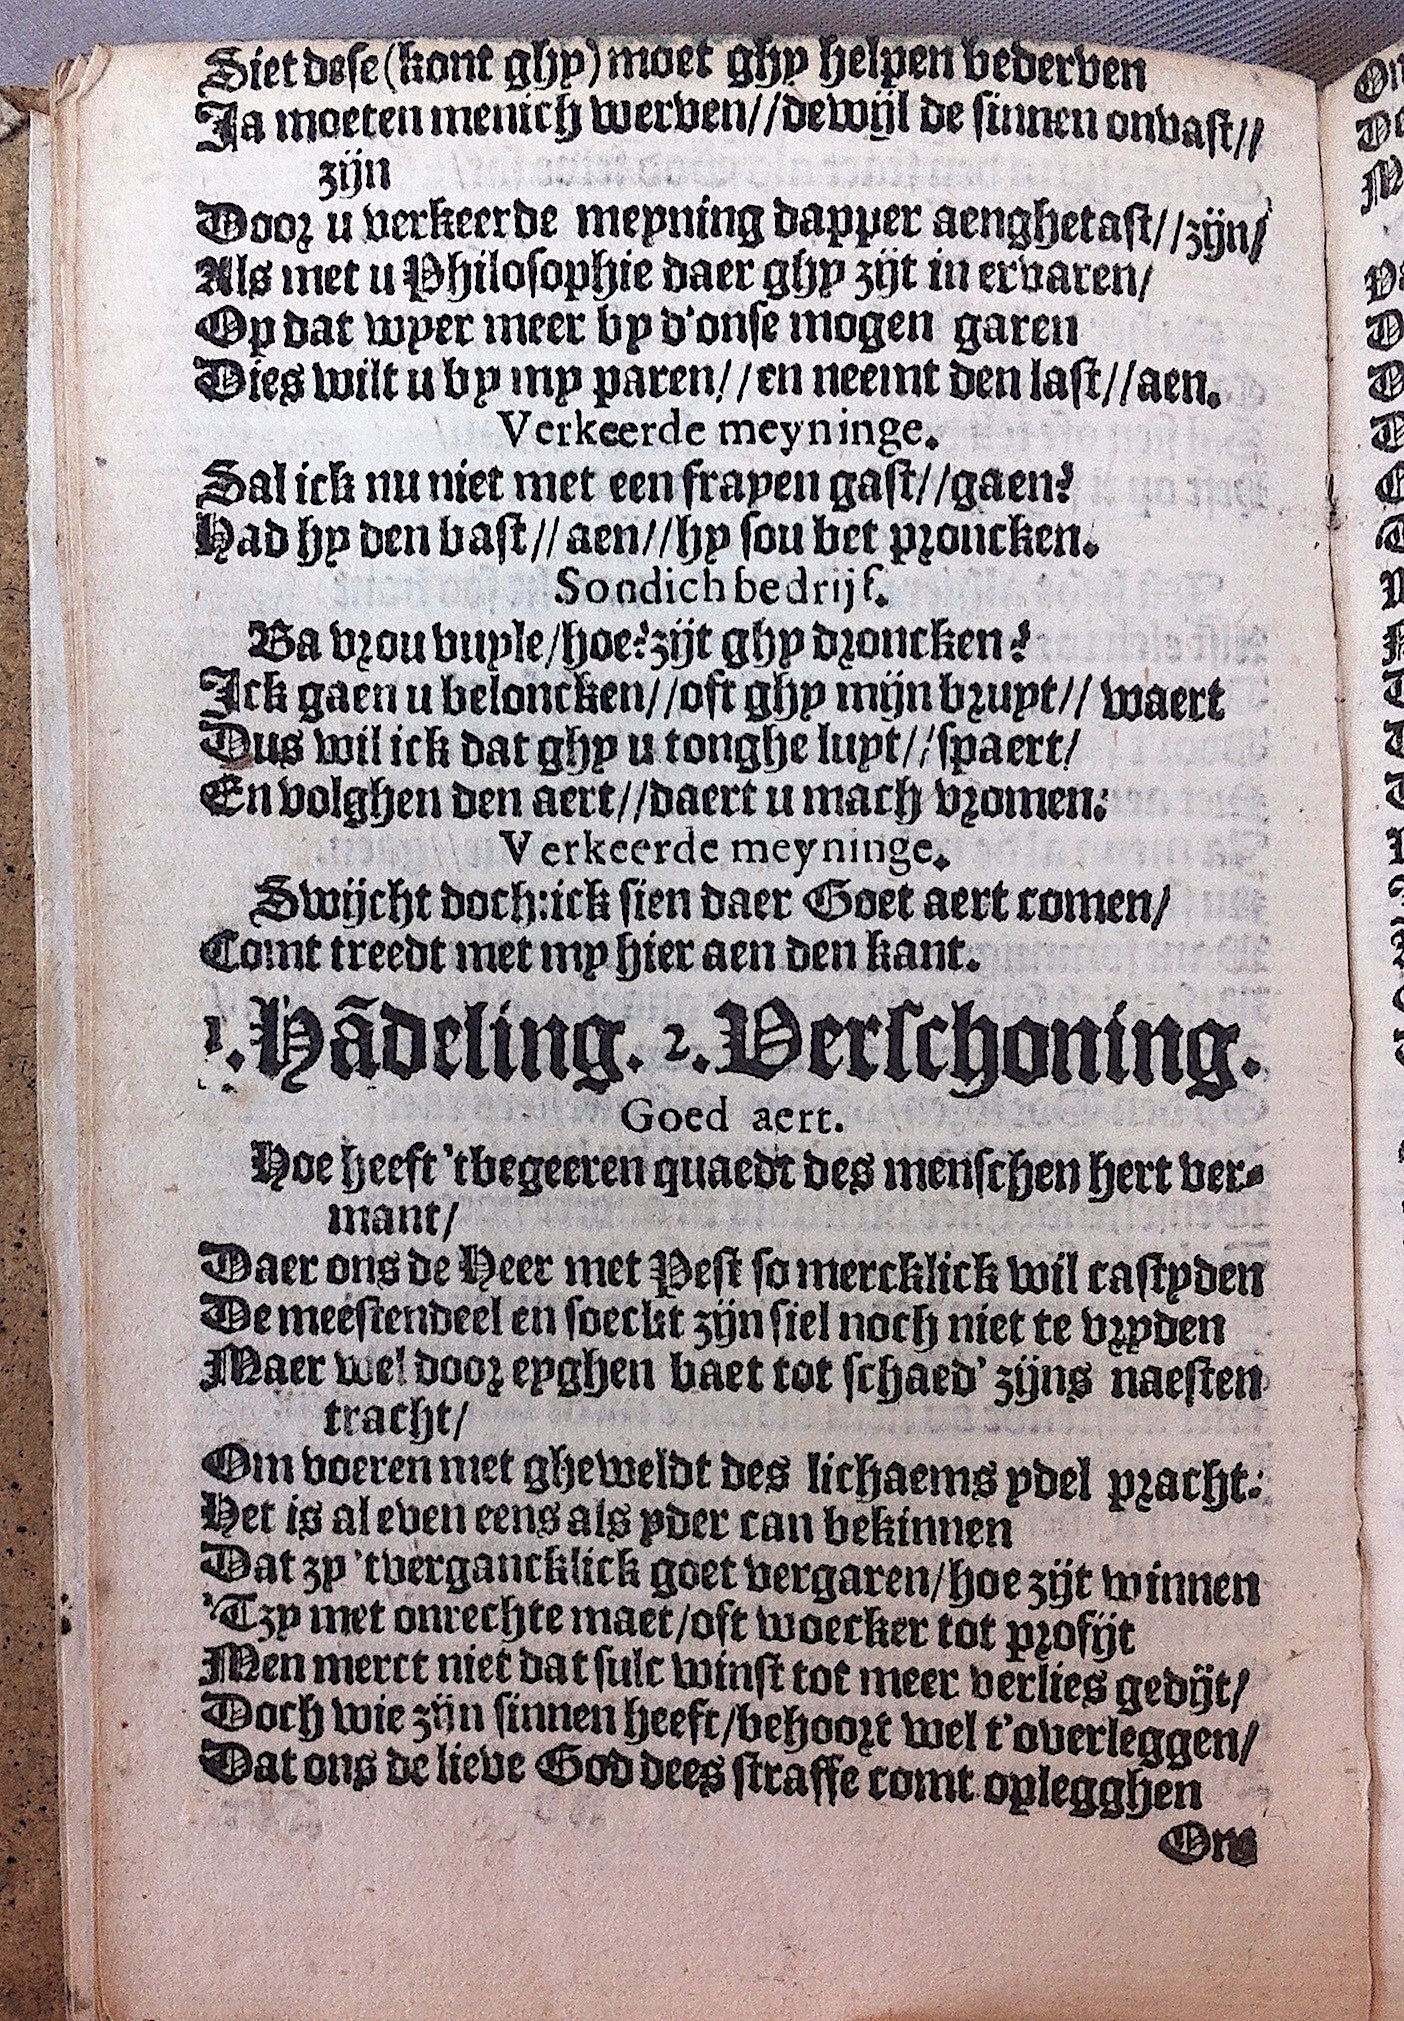 Siet dese (kont ghy) moet ghy helpen bederven
Ja moeten menich werven//dewijl de sinnen onvast//
zijn
Door u verkeerde meyning dapper aenghetast//zijn/
Als met u Philosophie daer ghy zijt in ervaren/
Op dat wyer meer by d'onse mogen garen
Dies wilt u by my paren//en neemt den last//aen.
Verkeerde meyninge.
Sal ick nu niet met een frayen gast//gaen?
Had hy den bast//aen//hy sou bet proncken.
Sondich bedrijf.
Ba vrou vuyle/hoe? zijt ghy droncken?
Ick gaen u beloncken//oft ghy mijn bruyt// waert
Dus wil ick dat ghy u tonghe luyt//spaert/
En volghen den aert//daert u mach vromen.
Verkeerde meyninge.
Swijcht doch: ick sien daer Goet aert comen/
Comt treedt met my hier aen den kant.
1. Hãdeling. 2. Verschoning.
Goed aert.
Hoe heeft 'tbegeeren quaedt des menschen hert ver-
mant/
Daer ons de Heer met Pest so mercklick wil castyden
De meestendeel en soeckt zijn siel noch niet te vryden
Maer wel door eyghen baet tot schaed' zijns naesten
tracht/
Om voeren met gheweldt des lichaems ydel pracht:
Het is al even eens als yder can bekinnen
Dat zy 'tvergancklick goet vergaren/hoe zijt winnen
'Tzy met onrechte maet/oft woecker tot profijt
Men merct niet dat sulc winst tot meer verlies gedijt/
Doch wie zijn sinnen heeft/behoort wel t'overleggen/
Dat ons de lieve God dees straffe comt oplegghen